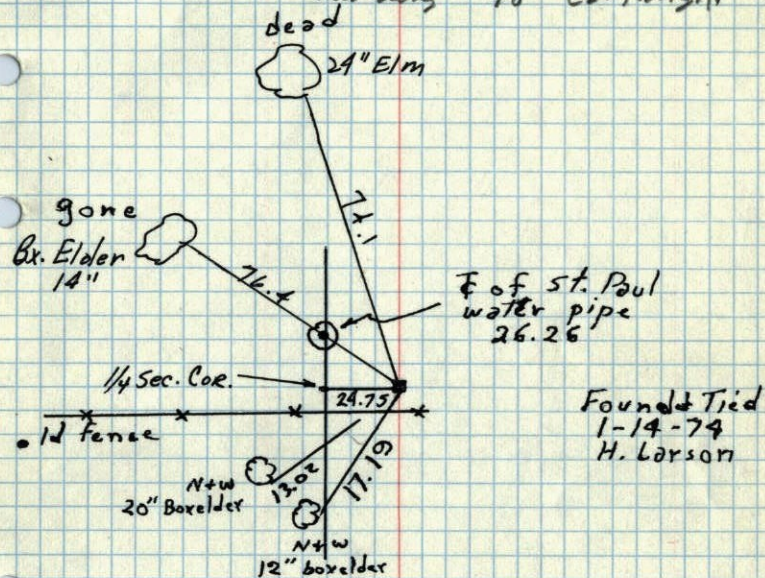 dead
24" Elm
71.1
gone
Bx. Elder
14"
76.4
℄ of St. Paul
water pipe
26.26
1/4 Sec. Cor.
24.75
Found & Tied
1-14-74
H. Larson
old Fence
N+W
20" Boxelder
13.02
17.19
N+W
12" boxelder